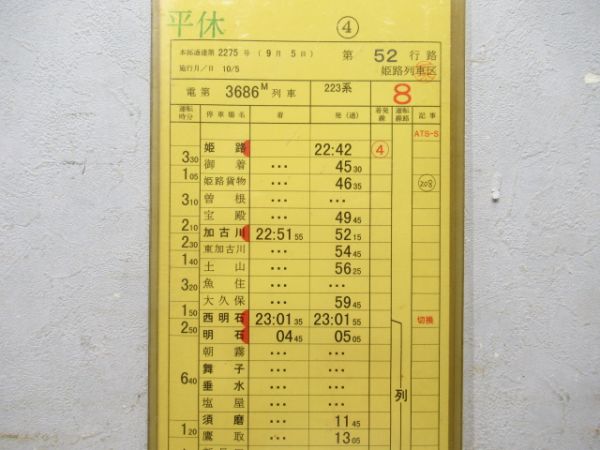 平休 ④
本拓通達第 2275 号 ( 9 月 5 日 ) 第 52 行路
施行月/日 10/5 姫路列車区
電第 3686M 列車 223系 8
運転時分 停車場名 着 発(通) 着発線 運転線路 記事
ATS-S
姫路 22:42 ④
3 30 御着 … 45 30
1 05 姫路貨物 … 46 35
3 10 曽根 … …
宝殿 … 49 45
2 10 加古川 22:51 55 52 15
2 30 東加古川 … 54 45
1 40 土山 … 56 25
3 20 魚住 … …
大久保 … 59 45
1 50 西明石 23:01 35 23:01 55 切換
2 50 明石 04 45 05 05
朝霧 … …
舞子 … …
6 40 垂水 … … 列
塩屋 … …
須磨 … 11 45
1 20 鷹取 … 13 05